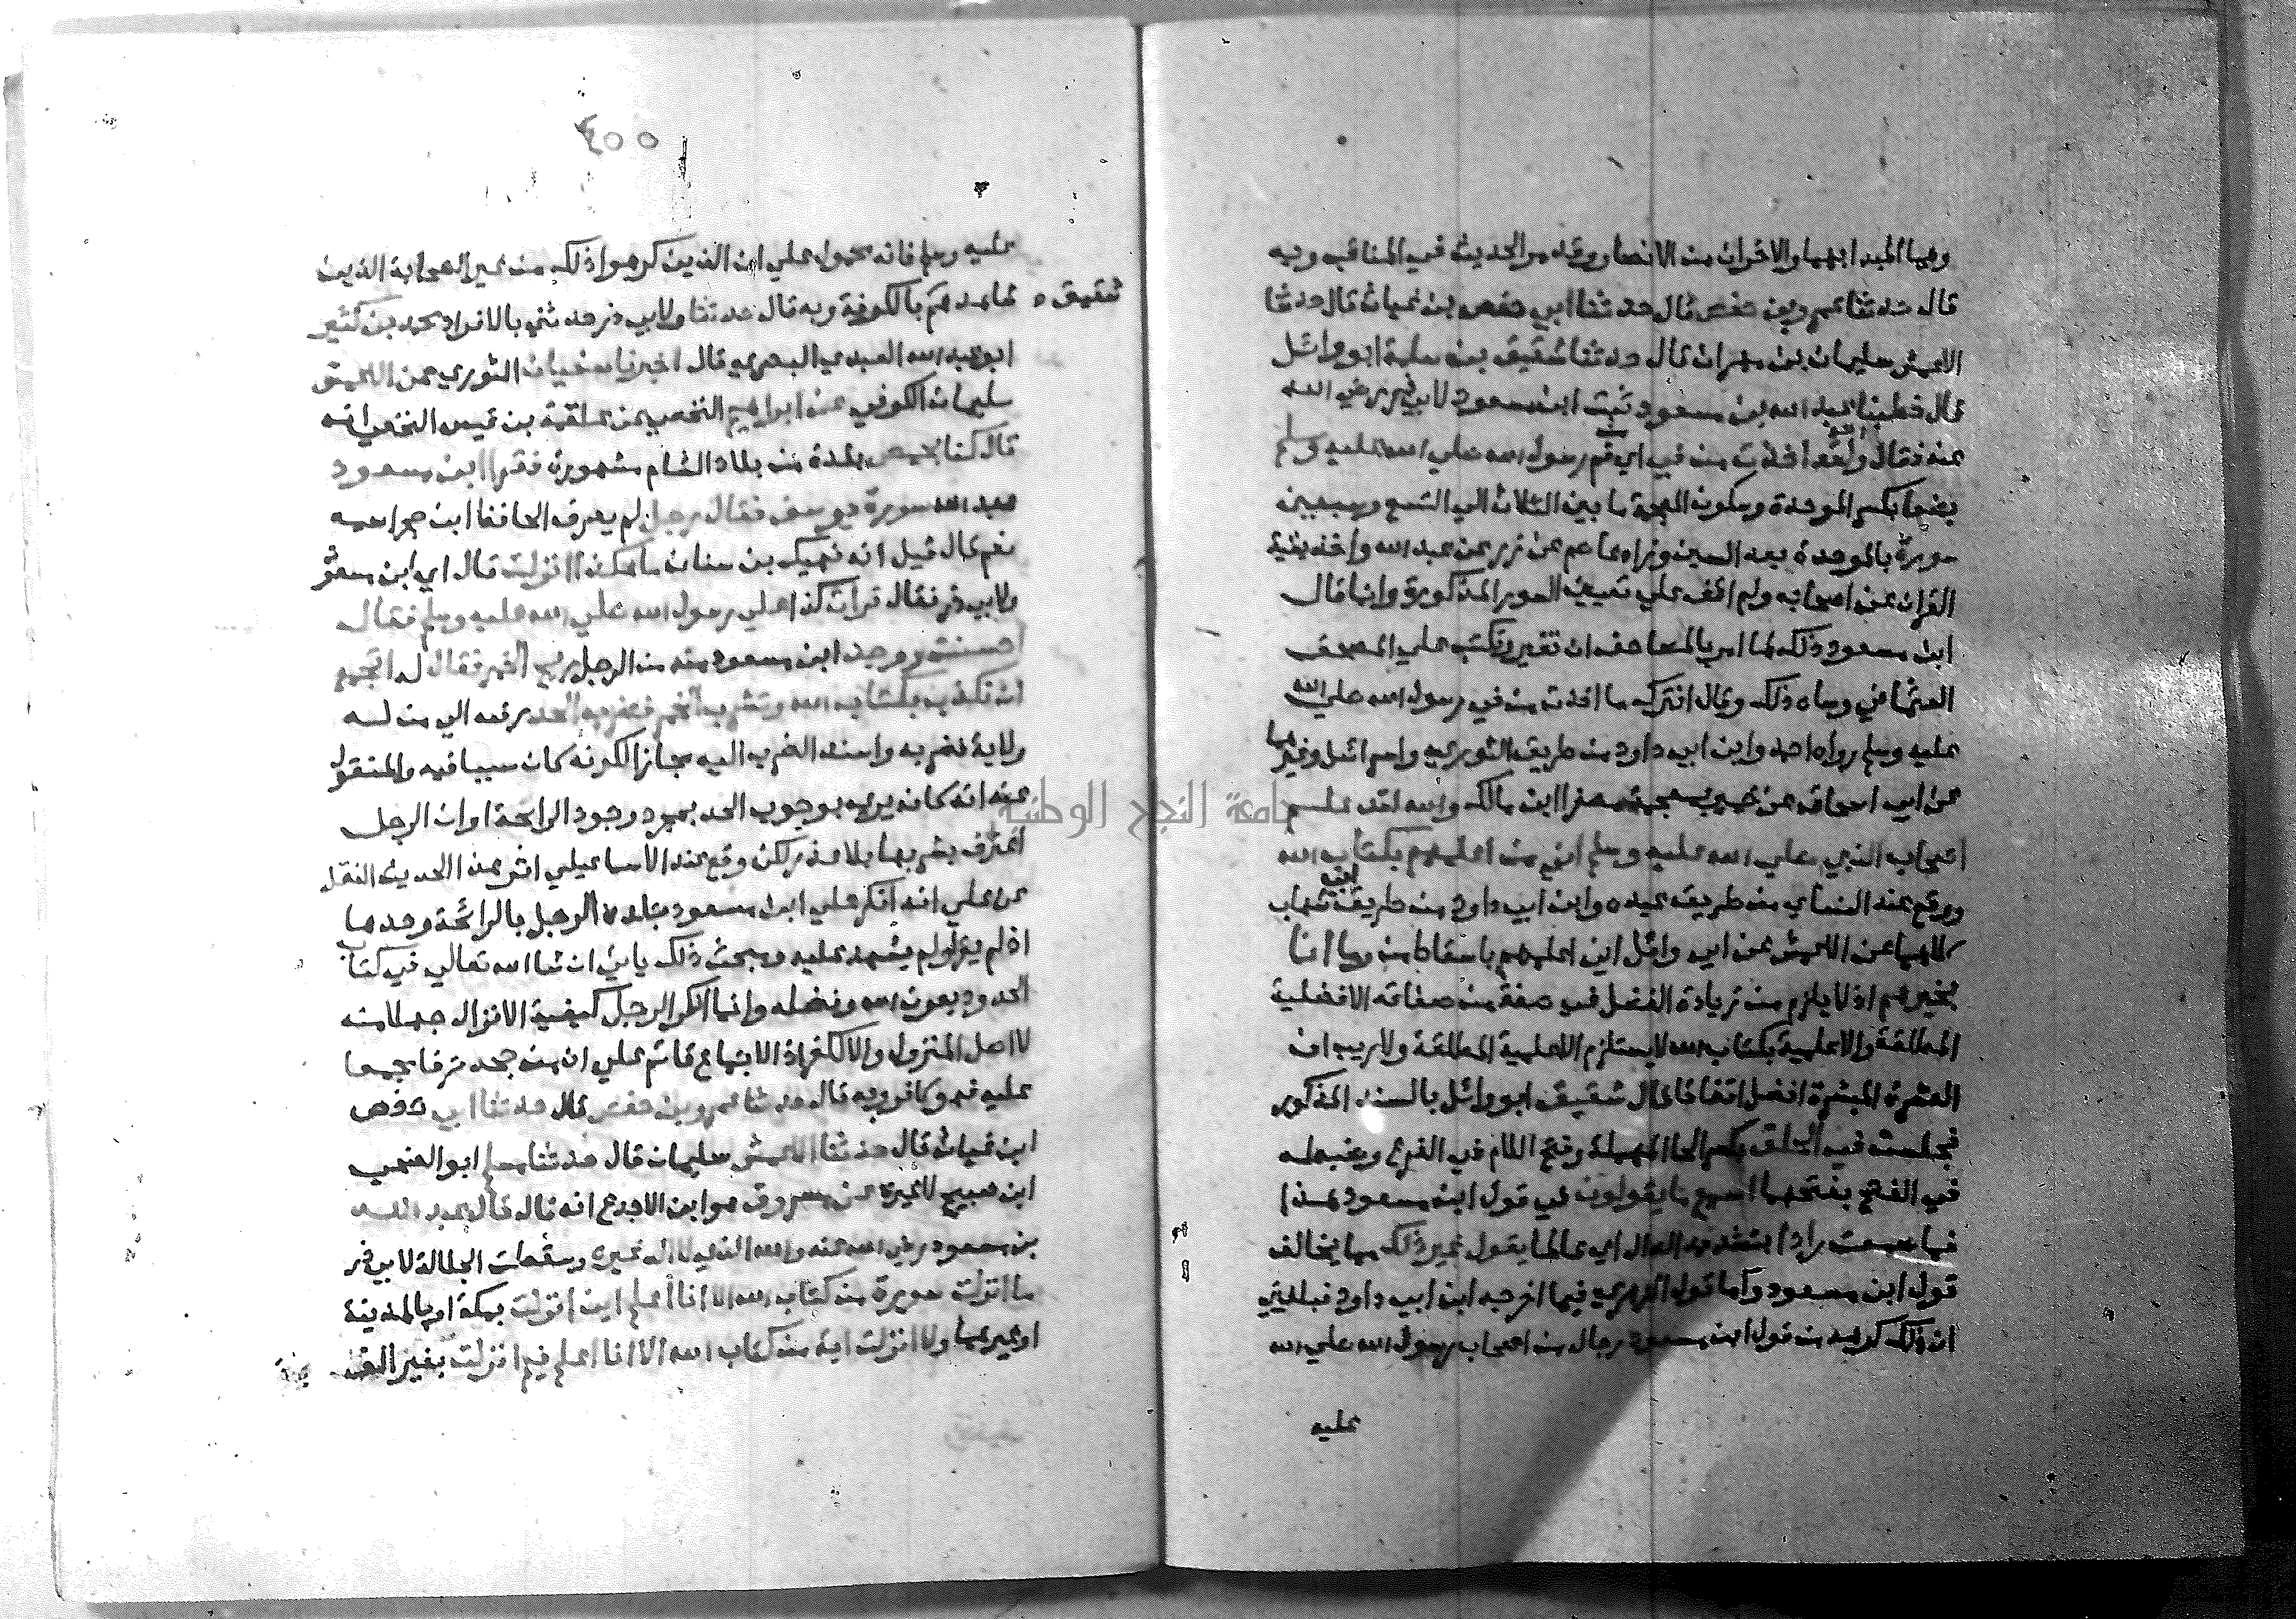 وهما المبدا بهما والاخران من الانصار وقد مر الحديث في المناقب وبه
قال حدثنا عمرو بن حفص قال حدثنا ابي حفص بن غياث قال حدثنا
الاعمش سليمان بن مهران قال حدثنا شقيق بن سلمة ابو وائل
قال خطبنا عبد الله بن مسعود ثبت ابن مسعود لابي ذر رضي الله
عنه فقال والله لقد اخذت من في اي فم رسول الله صلي الله عليه وسلم
بضعا بكسر الموحدة وسكون المعجمة ما بين الثلاث الي التسع وسبعين
سورة بالموحدة بعد السين وزاد عاصم عن زر عن عبد الله واخذ بقية
القران عن اصحابه ولم اقف علي تعيين السور المذكورة وانما قال
ابن مسعود ذلك لما امر بالمصاحف ان تغير وتكتب علي المصحف
العثماني وساه ذلك وقال افترك ما اخذت من في رسول الله صلي الله
عليه وسلم رواه احمد وابن ابي داود من طريق الثوري واسرائيل وغيرهما
عن ابي اسحاق عن خمير بمعجمة مصغرا ابن مالك والله لقد علم
اصحاب النبي صلي الله عليه وسلم اني من اعلمهم بكتاب الله
ووقع عند النساي من طريق عبده وابن ابي داود من طريق ابي شهاب
كلاهما عن الاعمش عن ابي وائل اني اعلمهم باسقاط من وما انا
بخيرهم اذ لا يلزم من زيادة الفضل في صفة من صفاته الافضلية
المطلقة والاعلمية بكتاب الله لا يستلزم الاعلمية المطلقة ولا ريب ان
العشرة المبشرة افضل اتفاقا قال شقيق ابو وائل بالسند المذكور
فجلست في الحلق بكسر الحا المهملة وفتح اللام في الفرع وضبطه
في الفتح بفتحهما اسمع ما يقولون في قول ابن مسعود هذا
فما سمعت رادا بتشديد الدال اي عالما يقول غير ذلك مما يخالف
قول ابن مسعود واما قول الزهري فيما اخرجه ابن ابي داود فبلغني
ان ذلك كرهه من قول ابن مسعود رجال من اصحاب رسول الله صلي الله
عليه
٤٥٥
عليه وسلم فانه محمول علي ان الذين كرهوا ذلك من غير الصحابة الذين
شقيق ه شاهدهم بالكوفة وبه قال حدثنا ولابي ذر حدثني بالافراد محمد بن كثير
ابو عبد الله العبدي البصري قال اخبرنا سفيان الثوري عن الاعمش
سليمان الكوفي عن ابراهيم النخعي عن علقمة بن قيس النخعي انه
قال كنا بحمص بلدة من بلاد الشام مشهورة فقرا ابن مسعود
عبد الله سورة يوسف فقال رجل لم يعرف الحافظ ابن حجر اسمه
نعم قال قيل انه نهيك بن سنان ما هكذا انزلت قال اي ابن مسعود
ولابي ذر فقال قرات كذا علي رسول الله صلي الله عليه وسلم فقال
احسنت ووجد ابن مسعود منه من الرجل ريح الخمر فقال له اتجمع
ان تكذب بكتاب الله وتشرب الخمر فضربه الحد رفعه الي من له
ولاية فضربه واسند الضرب اليه مجازا لكونه كان سببا فيه والمنقول
عنه انه كان يري بوجوب الحد بمجرد وجود الرائحة او ان الرجل
اعترف بشربها بلا عذر لكن وقع عند الاسماعيلي اثر هذا الحديث النقل
عن علي انه انكر علي ابن مسعود جلده الرجل بالرائحة وحدها
اذ لم يقر ولم يشهد عليه ومبحث ذلك ياتي ان شا الله تعالي في كتاب
الحدود بعون الله وفضله وانما انكر الرجل كيفية الانزال جهلا منه
لا اصل المنزول والا لكفر اذ الاجماع قائم علي ان من جحد حرفا مجمعا
عليه فهو كافر وبه قال حدثنا عمرو بن حفص قال حدثنا ابي حفص
ابن غياث قال حدثنا الاعمش سليمان قال حدثنا مسلم ابو الضحي
ابن صبيح لا غيره عن مسروق هو ابن الاجدع انه قال قال عبد الله
بن مسعود رضي الله عنه والله الذي لا اله غيره وسقطت الجلالة لابي ذر
ما انزلت سورة من كتاب الله الا انا اعلم اين انزلت بمكة او بالمدينة
او غيرهما ولا انزلت اية من كتاب الله الا انا اعلم فيم انزلت بغير
جامعة النجاح الوطنية